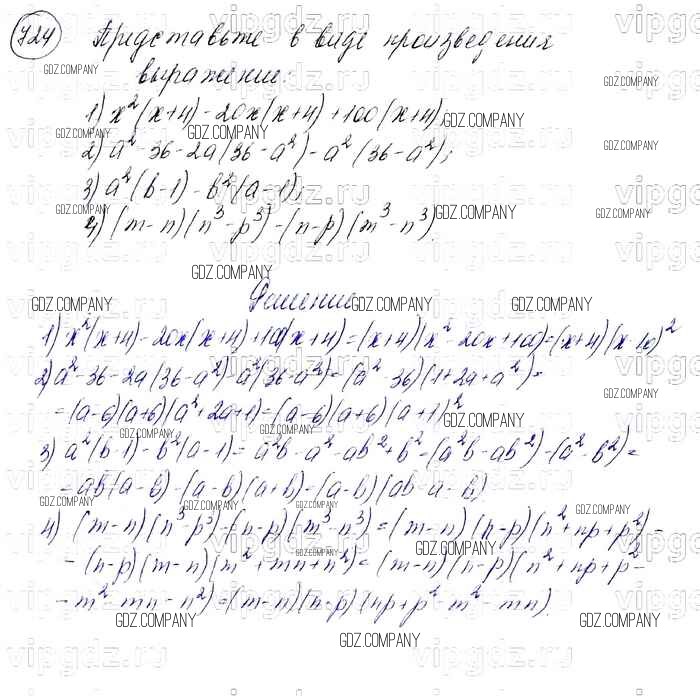 724 Представьте в виде произведения
выражение:
1) x²(x+4) - 20x(x+4) + 100(x+4);
2) a² - 36 - 2a(36 - a²) - a²(36 - a²);
3) a²(b-1) - b²(a-1);
4) (m-n)(n³-p³) - (n-p)(m³-n³).
Решение
1) x²(x+4) - 20x(x+4) + 100(x+4) = (x+4)(x² - 20x + 100) = (x+4)(x-10)²
2) a² - 36 - 2a(36-a²) - a²(36-a²) = (a²-36)(1+2a+a²) =
= (a-6)(a+6)(a²+2a+1) = (a-6)(a+6)(a+1)².
3) a²(b-1) - b²(a-1) = a²b - a² - ab² + b² = (a²b - ab²) - (a² - b²) =
= ab(a-b) - (a-b)(a+b) = (a-b)(ab-a-b)
4) (m-n)(n³-p³) - (n-p)(m³-n³) = (m-n)(n-p)(n²+np+p²) -
- (n-p)(m-n)(m²+mn+n²) = (m-n)(n-p)(n²+np+p² -
- m² - mn - n²) = (m-n)(n-p)(np+p²-m²-mn).